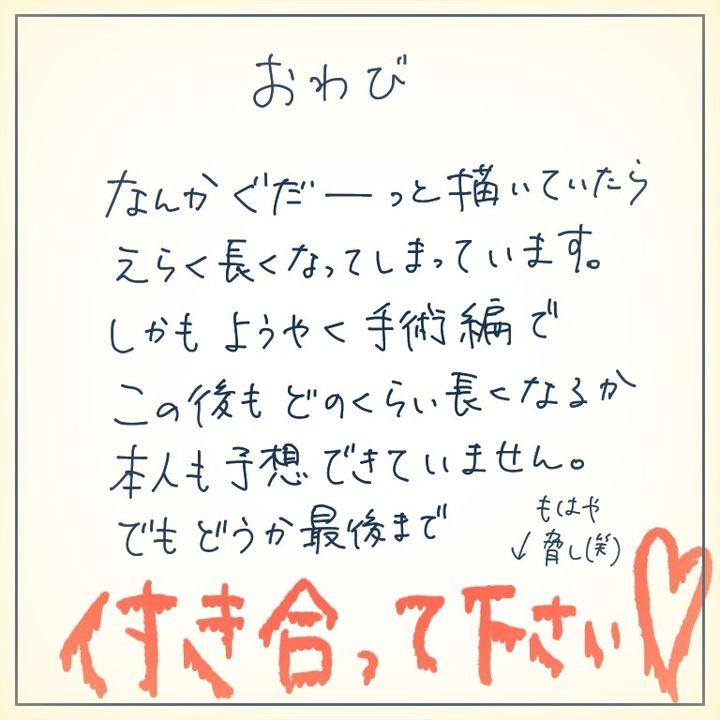 おわび
なんかぐだーっと描いていたら
えらく長くなってしまっています。
しかもようやく手術編で
この後もどのくらい長くなるか
本人も予想できていません。
でもどうか最後まで
もはや
↓脅し(笑)
付き合って下さい♡